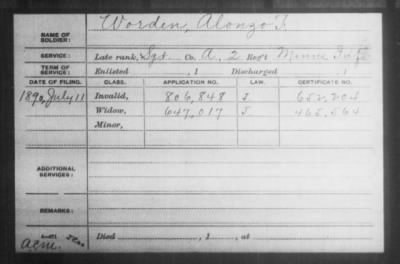 Worden, Alonzo F.
NAME OF SOLDIER:
SERVICE: Late rank, Sgt. Co. A, 2 Reg't Minn Inf
TERM OF SERVICE: Enlisted , 1 Discharged , 1
DATE OF FILING. CLASS. APPLICATION NO. LAW. CERTIFICATE NO.
1890, July 11 Invalid, 806,848 J. 652,204
Widow, 647,017 J. 465,564
Minor,
ADDITIONAL SERVICES:
REMARKS:
Died , 1 , at